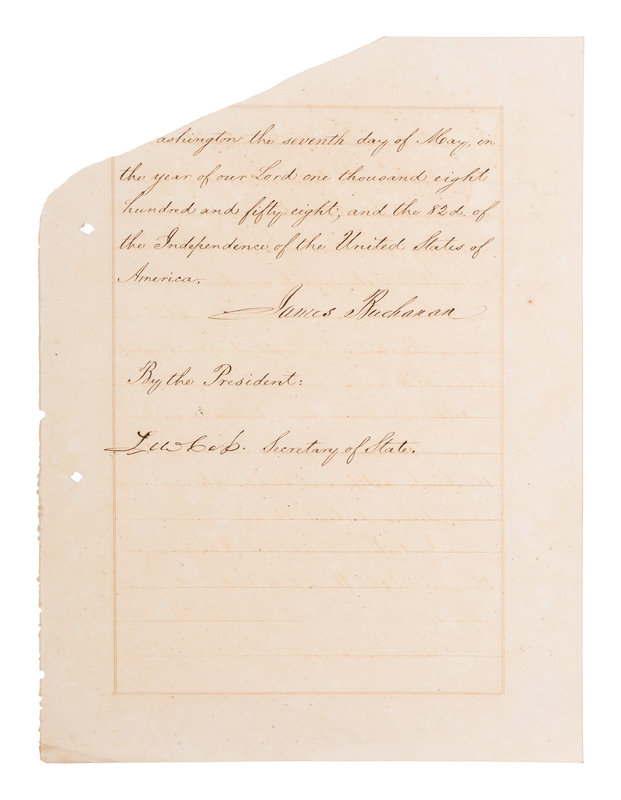 ashington the seventh day of May, in
the year of our Lord one thousand eight
hundred and fifty eight, and the 82d. of
the Independence of the United States of
America.
James Buchanan
By the President:
Lew Cass. Secretary of State.